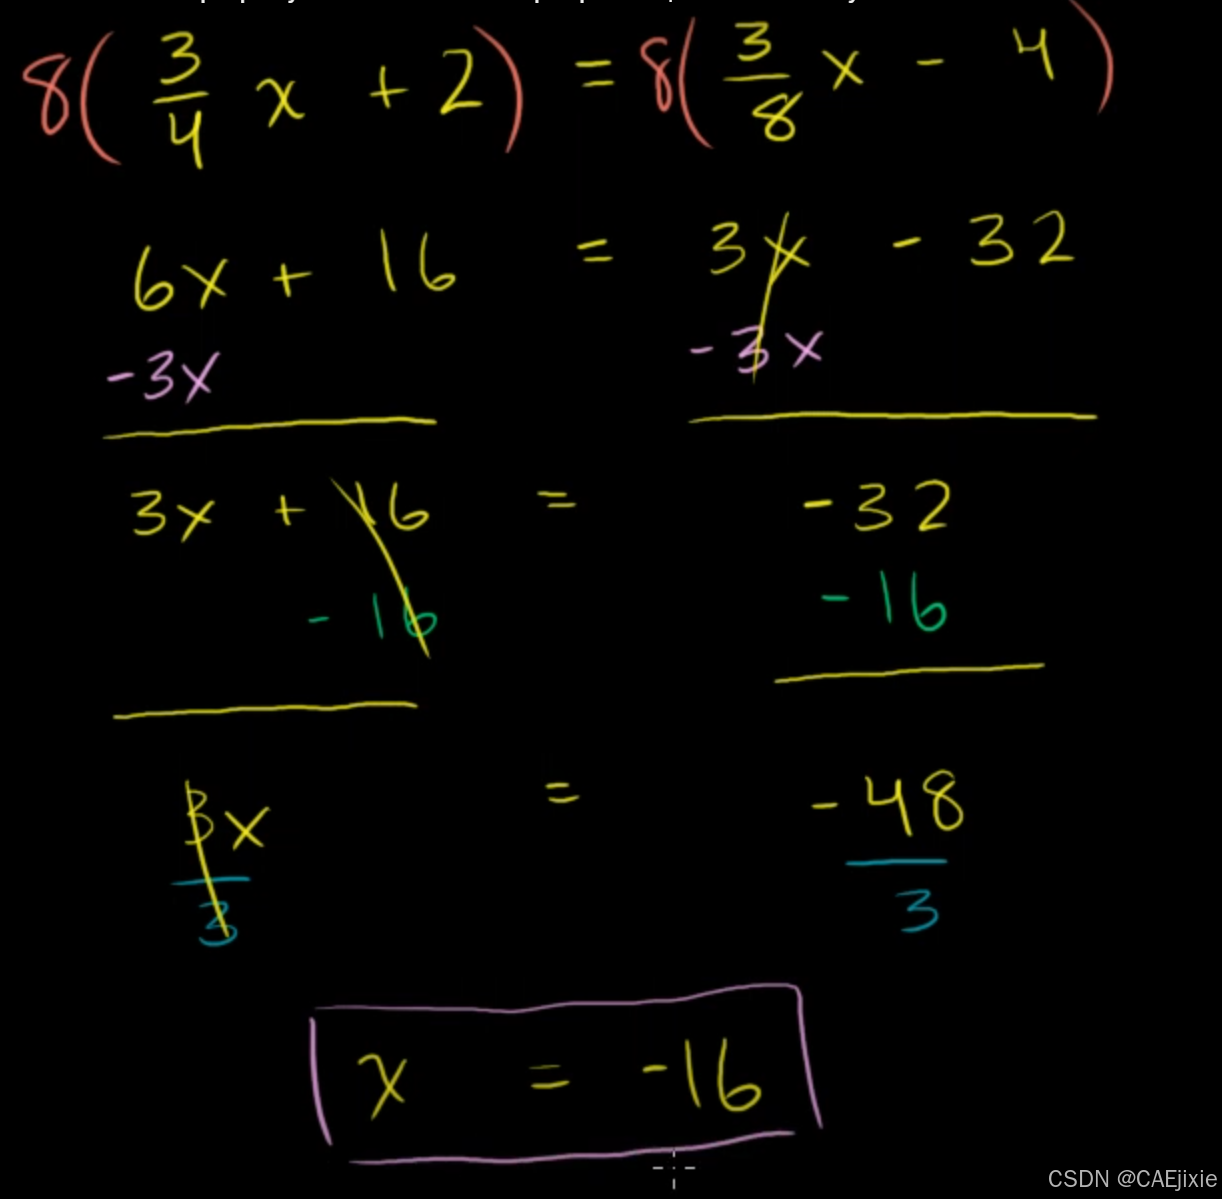 8(3/4 x + 2) = 8(3/8 x - 4)
6x + 16 = 3x - 32
-3x -3x
3x + 16 = -32
- 16 -16
3x/3 = -48/3
x = -16
CSDN @CAEjixie